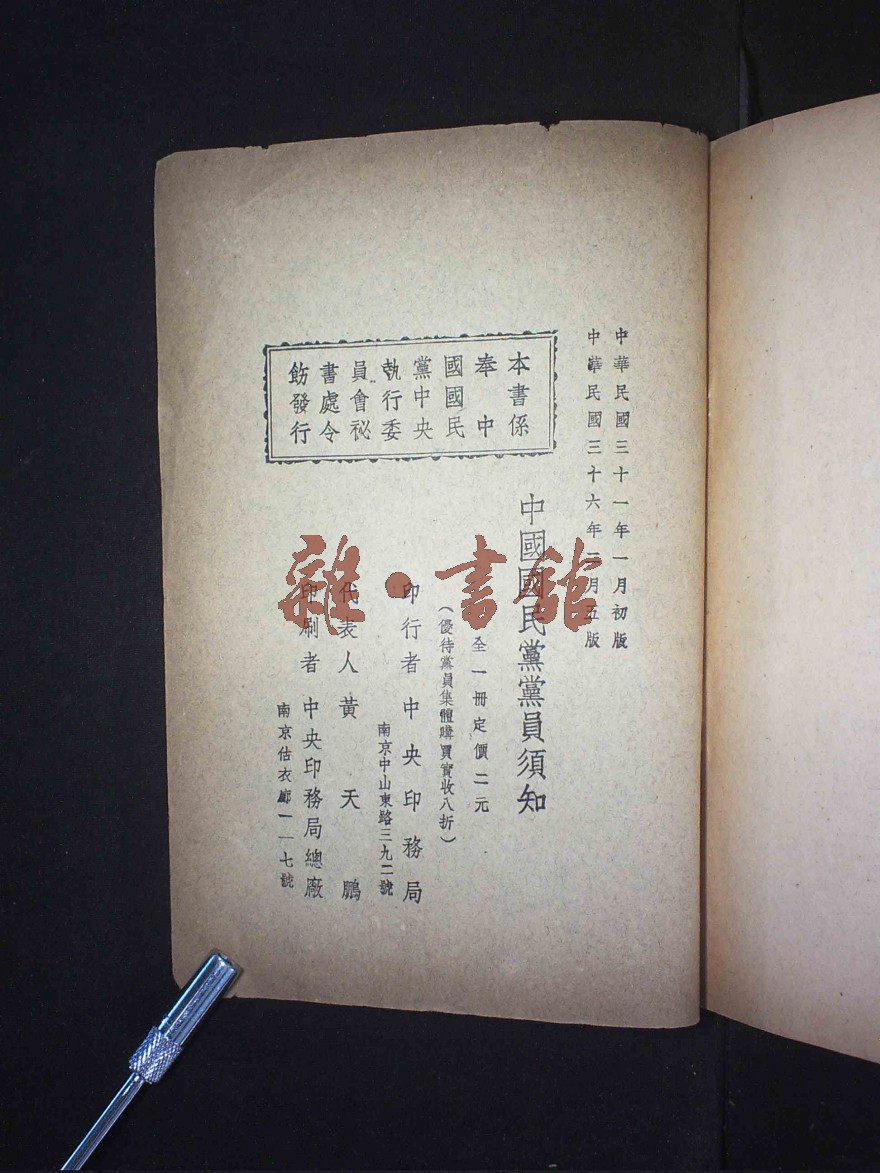 中華民國三十一年一月初版
中華民國三十六年二月五版
本書係
奉中
國國民
黨中央
執行委
員會祕
書處令
飭發行
中國國民黨黨員須知
全一冊定價二元
（優待黨員集體購買實收八折）
印行者 中央印務局
南京中山東路三九二號
代表人 黃天鵬
印刷者 中央印務局總廠
南京估衣廊一一七號
雜·書館